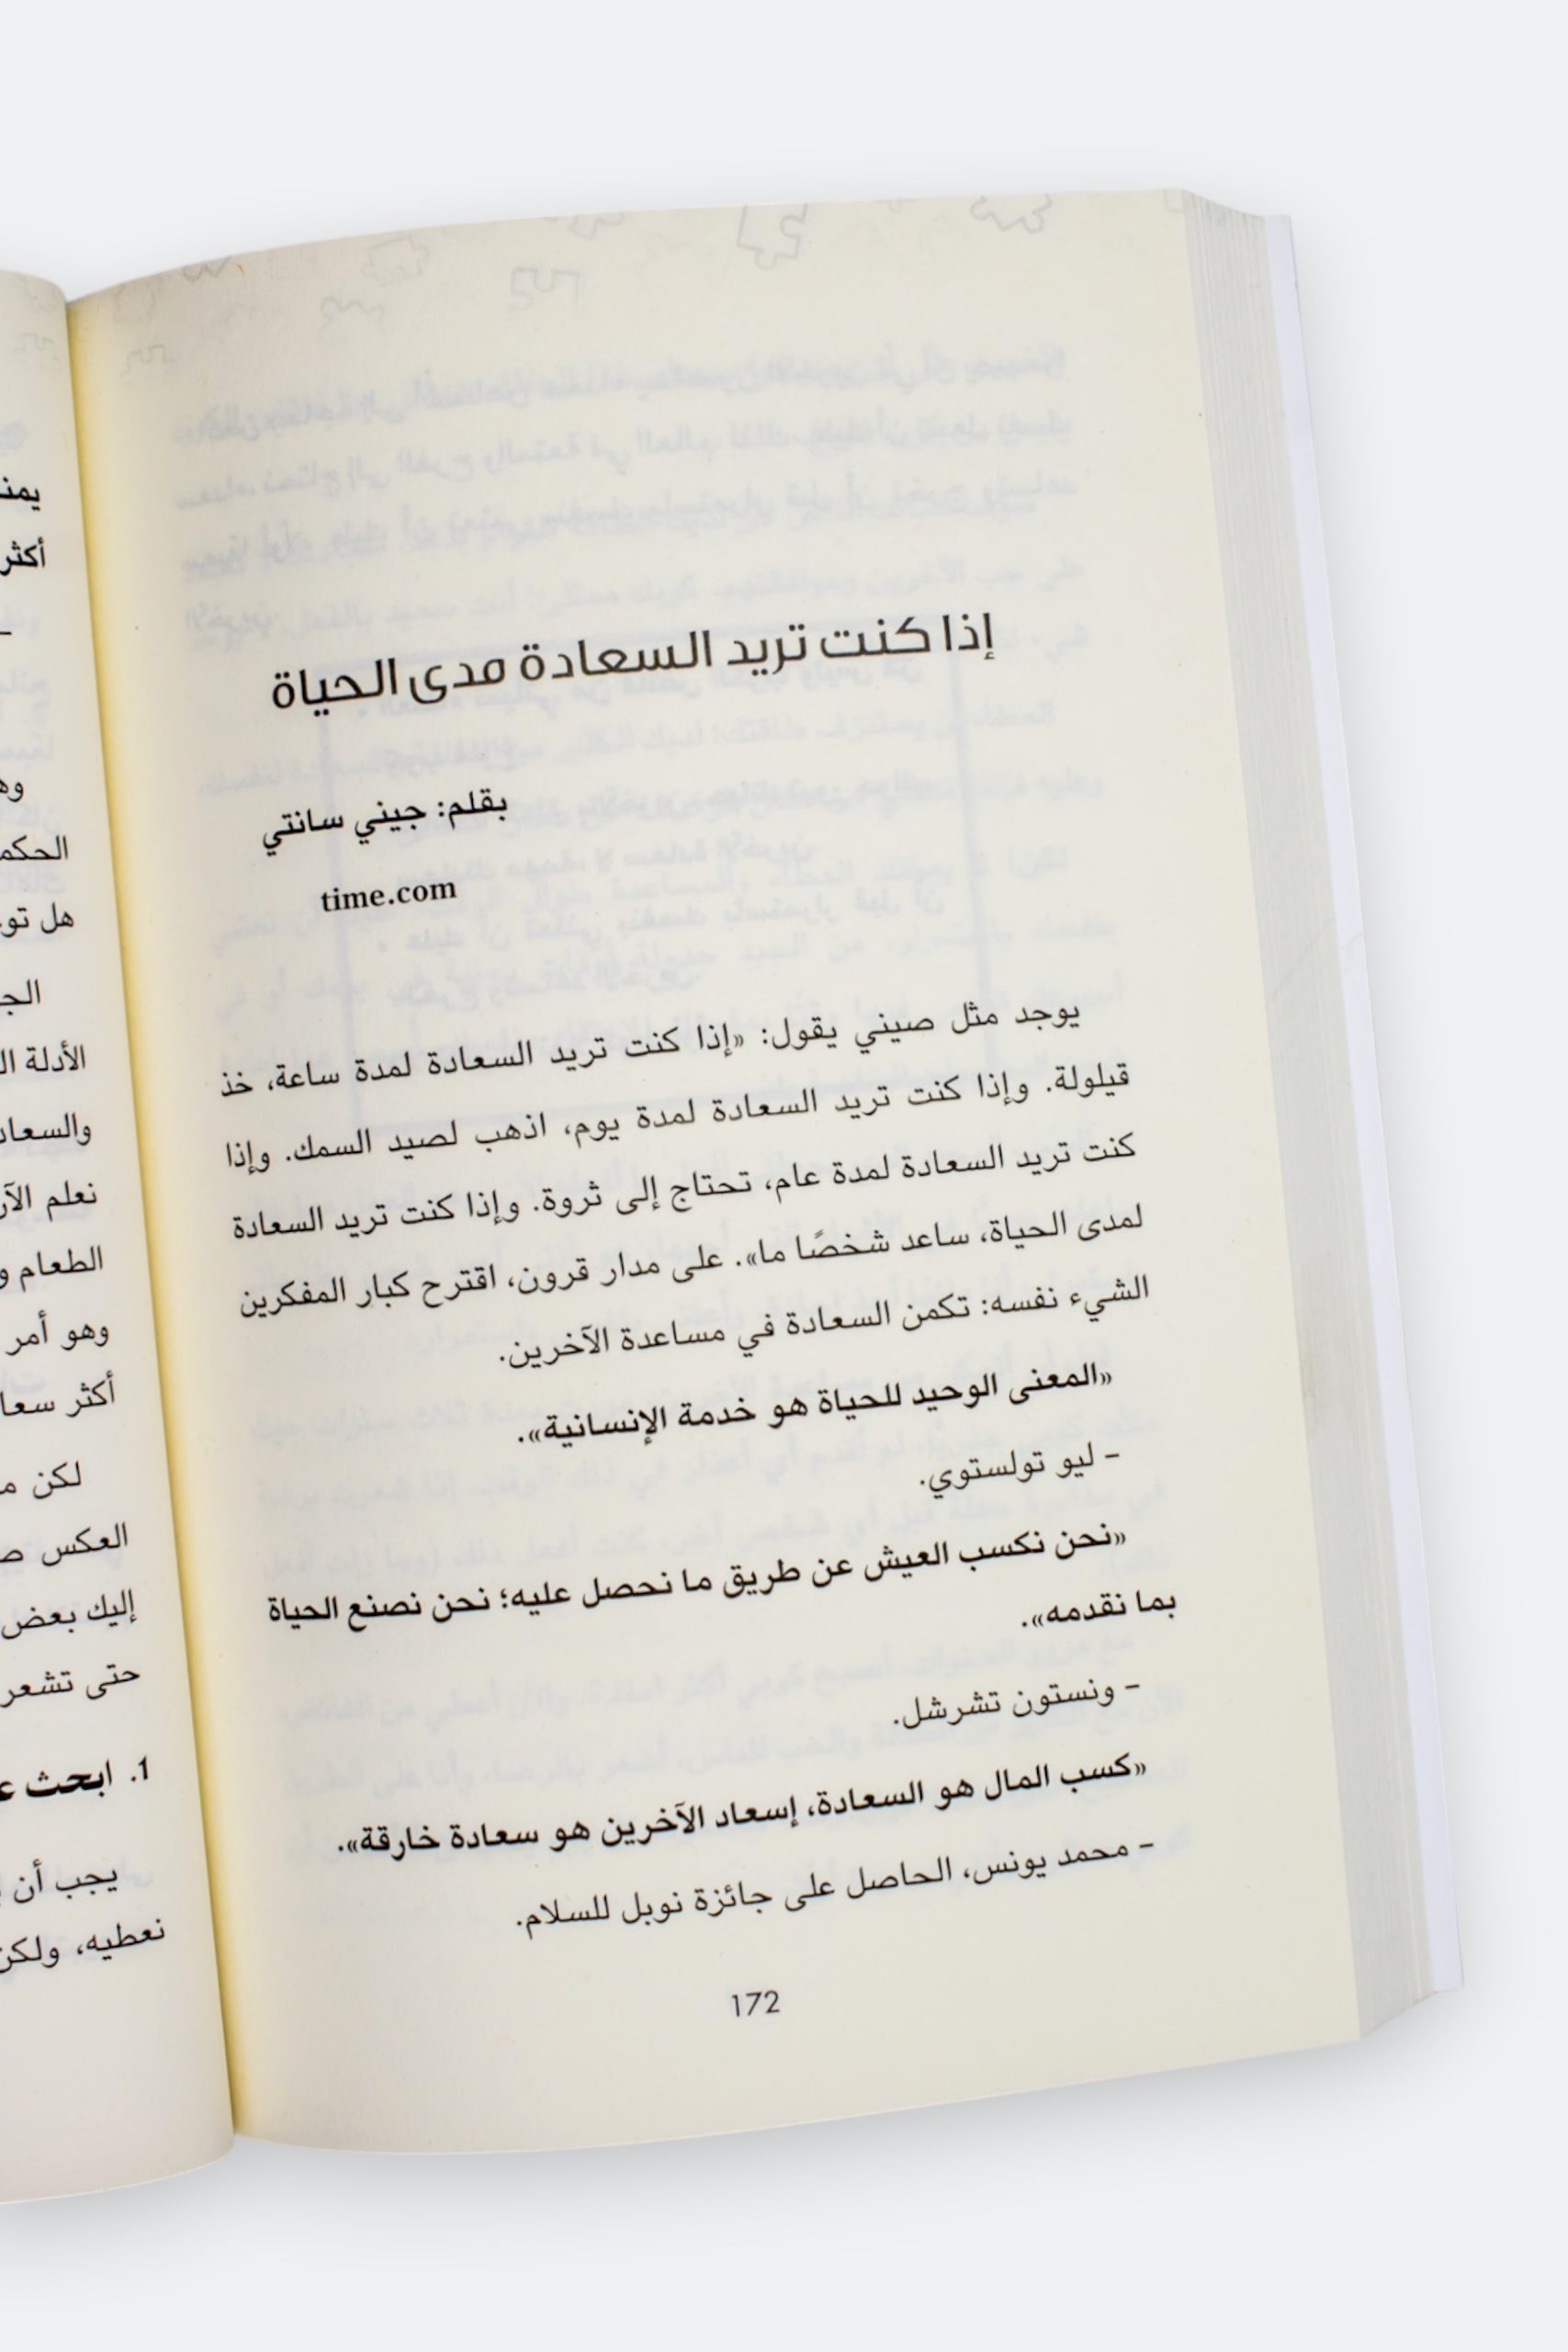 إذا كنت تريد السعادة مدى الحياة
بقلم: جيني سانتي
time.com
يوجد مثل صيني يقول: «إذا كنت تريد السعادة لمدة ساعة، خذ
قيلولة. وإذا كنت تريد السعادة لمدة يوم، اذهب لصيد السمك. وإذا
كنت تريد السعادة لمدة عام، تحتاج إلى ثروة. وإذا كنت تريد السعادة
لمدى الحياة، ساعد شخصًا ما». على مدار قرون، اقترح كبار المفكرين
الشيء نفسه: تكمن السعادة في مساعدة الآخرين.
«المعنى الوحيد للحياة هو خدمة الإنسانية».
– ليو تولستوي.
«نحن نكسب العيش عن طريق ما نحصل عليه؛ نحن نصنع الحياة
بما نقدمه».
– ونستون تشرشل.
«كسب المال هو السعادة، إسعاد الآخرين هو سعادة خارقة».
– محمد يونس، الحاصل على جائزة نوبل للسلام.
172
أكثر
هل تو
الأدلة
نعلم
الطعام
وهو أمر
أكثر
لكن
العكس
إليك بعض
حتى تشعر
1. ابحث
يجب أن
نعطيه، ولكن